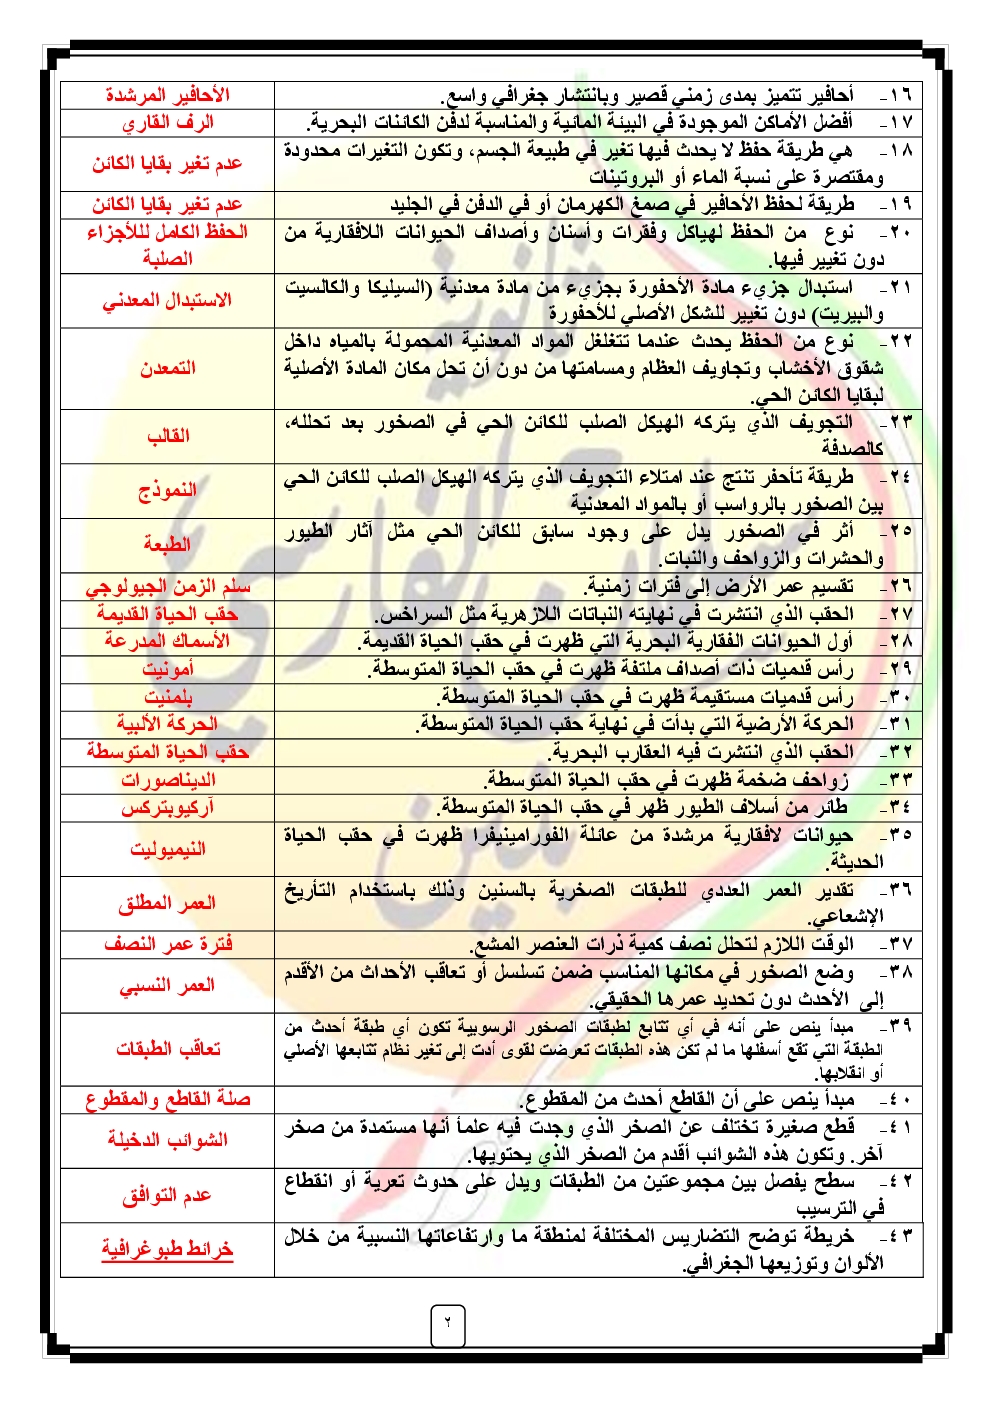 ١٦- أحافير تتميز بمدى زمني قصير وبانتشار جغرافي واسع.
الأحافير المرشدة
١٧- أفضل الأماكن الموجودة في البيئة المائية والمناسبة لدفن الكائنات البحرية.
الرف القاري
١٨- هي طريقة حفظ لا يحدث فيها تغير في طبيعة الجسم، وتكون التغيرات محدودة
ومقتصرة على نسبة الماء أو البروتينات
عدم تغير بقايا الكائن
١٩- طريقة لحفظ الأحافير في صمغ الكهرمان أو في الدفن في الجليد
عدم تغير بقايا الكائن
٢٠- نوع من الحفظ لهياكل وفقرات وأسنان وأصداف الحيوانات اللافقارية من
دون تغيير فيها.
الحفظ الكامل للأجزاء
الصلبة
٢١- استبدال جزيء مادة الأحفورة بجزيء من مادة معدنية (السيليكا والكالسيت
والبيريت) دون تغيير للشكل الأصلي للأحفورة
الاستبدال المعدني
٢٢- نوع من الحفظ يحدث عندما تتغلغل المواد المعدنية المحمولة بالمياه داخل
شقوق الأخشاب وتجاويف العظام ومسامتها من دون أن تحل مكان المادة الأصلية
لبقايا الكائن الحي.
التمعدن
٢٣- التجويف الذي يتركه الهيكل الصلب للكائن الحي في الصخور بعد تحلله،
كالصدفة
القالب
٢٤- طريقة تأحفر تنتج عند امتلاء التجويف الذي يتركه الهيكل الصلب للكائن الحي
بين الصخور بالرواسب أو بالمواد المعدنية
النموذج
٢٥- أثر في الصخور يدل على وجود سابق للكائن الحي مثل آثار الطيور
والحشرات والزواحف والنبات.
الطبعة
٢٦- تقسيم عمر الأرض إلى فترات زمنية.
سلم الزمن الجيولوجي
٢٧- الحقب الذي انتشرت في نهايته النباتات اللازهرية مثل السراخس.
حقب الحياة القديمة
٢٨- أول الحيوانات الفقارية البحرية التي ظهرت في حقب الحياة القديمة.
الأسماك المدرعة
٢٩- رأس قدميات ذات أصداف ملتفة ظهرت في حقب الحياة المتوسطة.
أمونيت
٣٠- رأس قدميات مستقيمة ظهرت في حقب الحياة المتوسطة.
بلمنيت
٣١- الحركة الأرضية التي بدأت في نهاية حقب الحياة المتوسطة.
الحركة الألبية
٣٢- الحقب الذي انتشرت فيه العقارب البحرية.
حقب الحياة المتوسطة
٣٣- زواحف ضخمة ظهرت في حقب الحياة المتوسطة.
الديناصورات
٣٤- طائر من أسلاف الطيور ظهر في حقب الحياة المتوسطة.
آركيوبتركس
٣٥- حيوانات لافقارية مرشدة من عائلة الفورامينيفرا ظهرت في حقب الحياة
الحديثة.
النيميوليت
٣٦- تقدير العمر العددي للطبقات الصخرية بالسنين وذلك باستخدام التأريخ
الإشعاعي.
العمر المطلق
٣٧- الوقت اللازم لتحلل نصف كمية ذرات العنصر المشع.
فترة عمر النصف
٣٨- وضع الصخور في مكانها المناسب ضمن تسلسل أو تعاقب الأحداث من الأقدم
إلى الأحدث دون تحديد عمرها الحقيقي.
العمر النسبي
٣٩- مبدأ ينص على أنه في أي تتابع لطبقات الصخور الرسوبية تكون أي طبقة أحدث من
الطبقة التي تقع أسفلها ما لم تكن هذه الطبقات تعرضت لقوى أدت إلى تغير نظام تتابعها الأصلي
أو انقلابها.
تعاقب الطبقات
٤٠- مبدأ ينص على أن القاطع أحدث من المقطوع.
صلة القاطع والمقطوع
٤١- قطع صغيرة تختلف عن الصخر الذي وجدت فيه علماً أنها مستمدة من صخر
آخر. وتكون هذه الشوائب أقدم من الصخر الذي يحتويها.
الشوائب الدخيلة
٤٢- سطح يفصل بين مجموعتين من الطبقات ويدل على حدوث تعرية أو انقطاع
في الترسيب
عدم التوافق
٤٣- خريطة توضح التضاريس المختلفة لمنطقة ما وارتفاعاتها النسبية من خلال
الألوان وتوزيعها الجغرافي.
خرائط طبوغرافية
ثانوية
سلمان الفارسي
بنين
٢